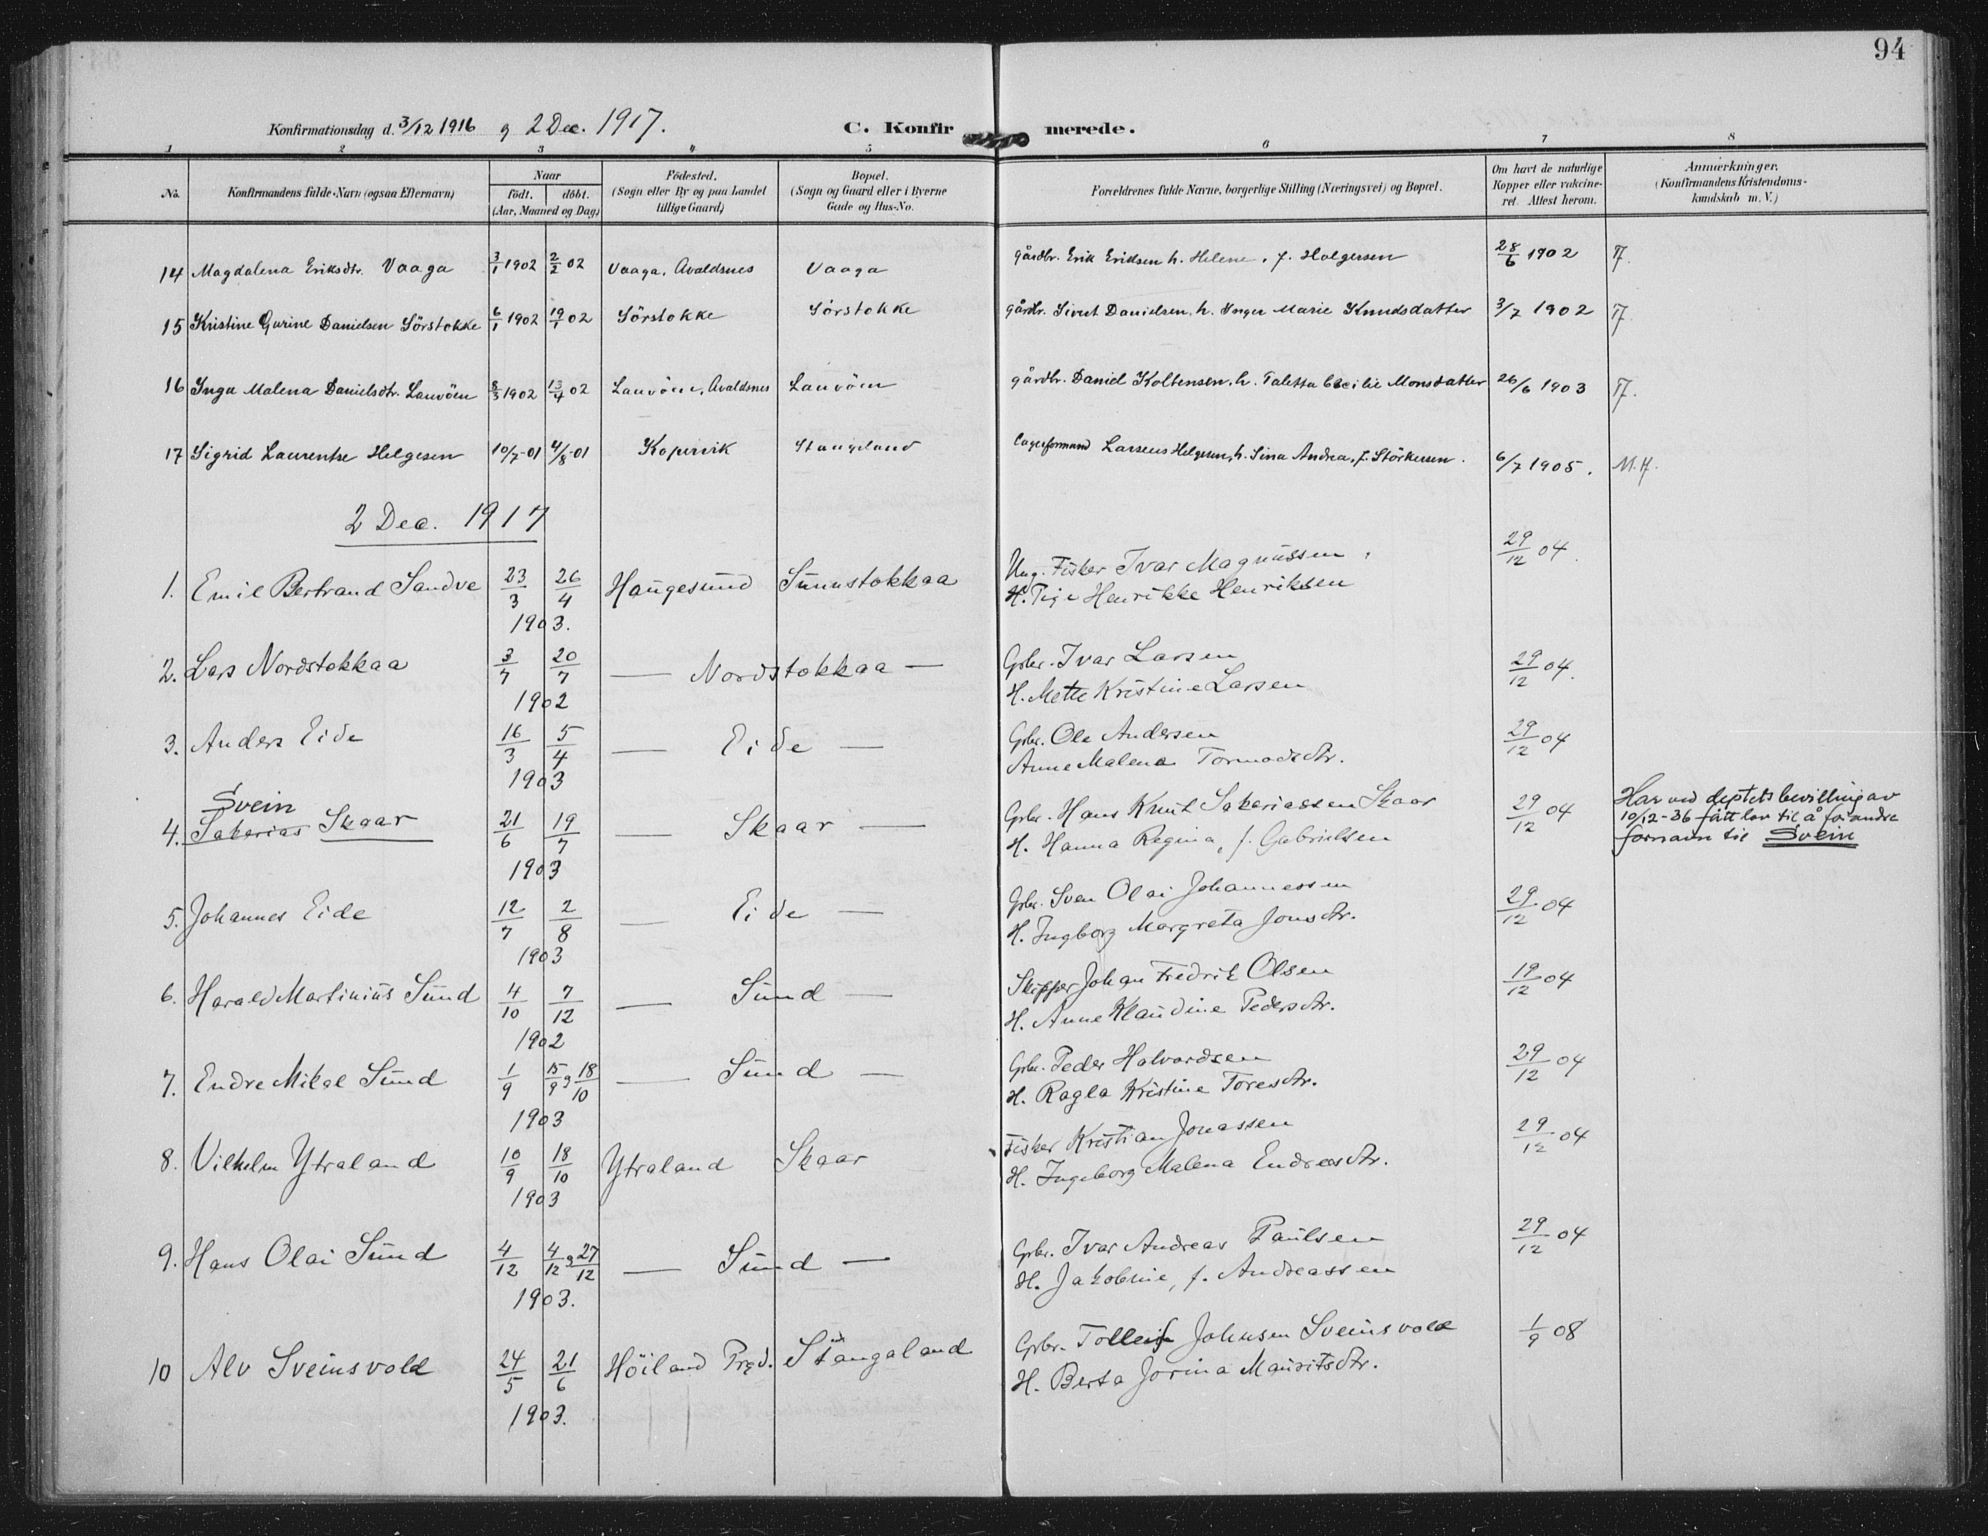 94
Konfirmationsdag d. 3/12 1916 og 2 Dec. 1917. C. Konfirmerede.
1 2 3 4 5 6 7 8
No. Konfirmandens fulde Navn (ogsaa Efternavn) Naar født. døbt. (Aar, Maaned og Dag) Fødested. (Sogn eller By og paa Landet tillige Gaard) Bopæl. (Sogn og Gaard eller i Byerne Gade og Hus-No. Forældrenes fulde Navne, borgerlige Stilling (Næringsvei) og Bopæl. Om havt de naturlige Kopper eller vakcineret. Attest herom. Anmærkninger. (Konfirmandens Kristendomskundskab m. V.)
14 Magdalena Eriksdtr. Vaaga 3/1 1902 2/2 02 Vaaga, Avaldsnes Vaaga gårdbr. Erik Eriksen h. Helene, f. Holgersen 28/6 1902 T.
15 Kristine Gurine Danielsen Sörstokke 6/1 1902 19/1 02 Sörstokke Sörstokke gårdbr. Sivert Danielsen, h. Inger Marie Knudsdatter 3/7 1902 T.
16 Inga Malena Danielsdtr. Lauvöen 8/3 1902 13/4 02 Lauvöen, Avaldsnes Lauvöen gårdbr. Daniel Koltensen, h. Taletta Cecilie Monsdatter 26/6 1903 T.
17 Sigrid Laurentse Helgesen 10/7-01 4/8-01 Kopervik Stangeland Lagerformand Larseus Helgesen, h. Sina Andrea, f. Störkersen. 6/7 1905. M.H.
2 Dec. 1917
1. Emil Bertrand Sandve 23/3 26/4 1903. Haugesund Sunnstokkaa Ung. Fisker Ivar Magnussen, 29/12 04.
H. Henrikke Henriksen
2. Lars Nordstokkaa 3/7 20/7 1902 — Nordstokkaa — Grbr. Ivar Larsen 29/12 04.
H. Mette Kristine Larsen
3. Anders Eide 16/3 5/4 1903 — Eide — Grbr. Ole Andersen 29/12 04
Anne Malena Tormodsdtr.
Svein
4. Sakarias Skaar 21/6 19/7 1903 — Skaar — Grbr. Hans Knut Sakariassen Skaar 29/12 04
H. Hanna Regina, f. Gabrielsen
Har ved deptets bevilling av
10/12-36 fått lov til å forandre
fornavn til Svein
5. Johannes Eide 12/7 2/8 1903 — Eide — Grbr. Sven Olai Johannessen 29/12 04
H. Ingborg Margreta Jonsdtr.
6. Harald Martinius Sund 4/10 7/12 1902 — Sund — Skipper Johan Fredrik Olsen 19/12 04
H. Anne Klaudine Pedersdtr.
7. Endre Mikal Sund 1/9 15/9 og 18/10 1903 — Sund — Grbr. Peder Halvardsen 29/12 04
H. Ragla Kristine Toresdtr.
8. Vilhelm Ytraland 10/9 18/10 1903 Ytraland Skaar Fisker Kristian Jonassen 29/12 04
H. Ingeborg Malena Endresdtr.
9. Hans Olai Sund 4/12 4/12 og 27/12 1903. — Sund — Grbr. Ivar Andreas Paulsen 29/12 04
H. Jakobine, f. Andreassen
10 Alv Sveinsvold 24/5 21/6 1903. Höiland Præd. Stangaland Grbr. Tolleif Johnsen Sveinsvold 1/9 08
H. Berta Jorina Mauritsdtr.